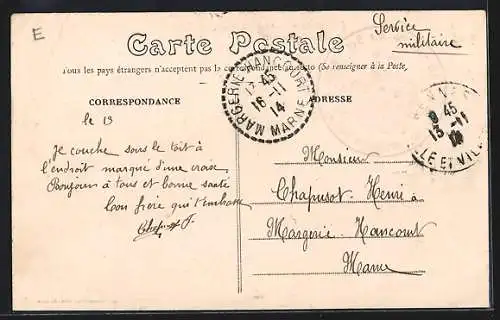 E
Service
militaire
Carte Postale
Tous les pays étrangers n'acceptent pas la correspondance au recto (Se renseigner à la Poste)
MARGERIE-HANCOURT
17 45
16-11
14
MARNE
CORRESPONDANCE
ADRESSE
RENNES
9 45
13-11
14
ILLE ET VIL
le 13
Je couche sous le toit à
l'endroit marqué d'une croix
Bonjour à tous et bonne santé
Ton frère qui t'embrasse
Chapusot J.
Monsieur
Chapusot Henri à
Margerie-Hancourt
Marne